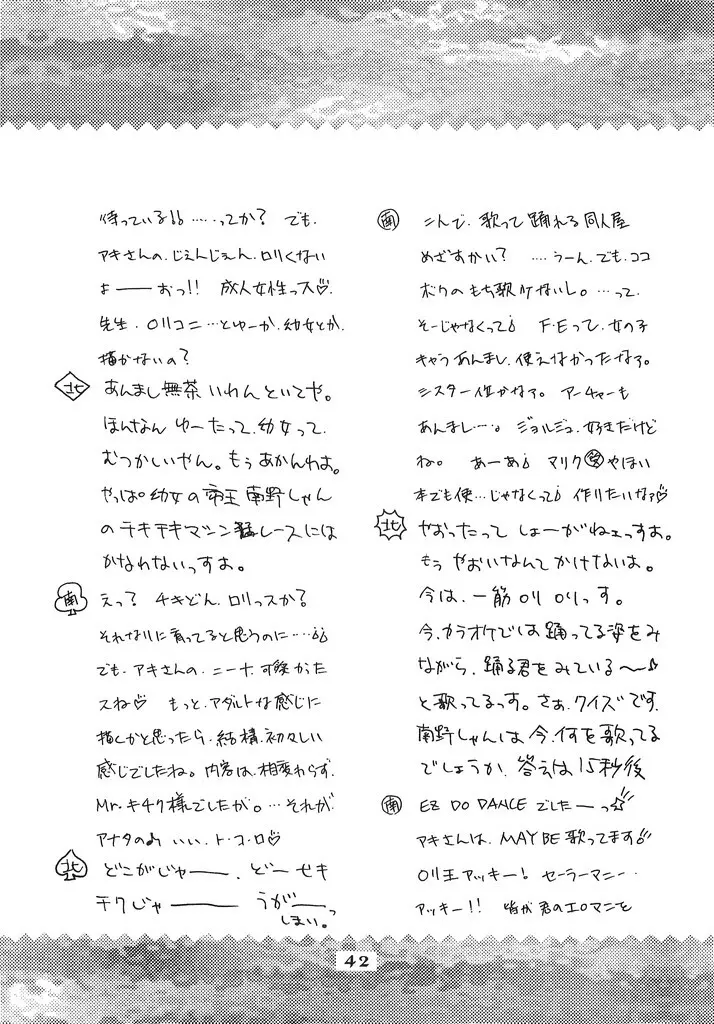 待っている!! ……ってか? でも、
アキさんの、じぇんじぇん、ロリくない
よ――おっ!! 成人女性っス♡
先生、ロリコニ…とゆーか、幼女とか、
描かないの?
北 あんまし無茶いわんといてや。
ほんなん ゆーたって、幼女って、
むつかしいやん。もぅ あかんわぁ。
やっぱ幼女の帝王南野しゃん
のチキチキマシン猛レースには
かなわないっすぁ。
南 えっ? チキどん、ロリっスか?
それなりに育ってると思うのに……
でも、アキさんの、ニーナ、可愛かた
スね♡ もっと、アダルトな感じに
描くかと思ったら、結構、初々しい
感じでしたね。内容は、相変わらず、
Mr.キチク様でしたが。…それが、
アナタのみ いい、ト・コ・ロ♡
北 どこがじゃ――、どーせキ
チクじゃ―― うが――っ
しまい。
南 こんで、歌って踊れる同人屋
めざすかい? ‥‥うーん、でも、ココ
ボクのもち歌がないし。…って、
そーじゃなくって F・Eって、女の子
キャラあんまし、使えなかったなァ。
シスター位かなァ。アーチャーも
あんまし…。ジョルジュ、好きだけど
ね。 あーあ マリク受やほい
本でも使…じゃなくって 作りたいなァ♡
北 やおったって しょーがねェっすぁ。
もぅ やおいなんてかけないよ。
今は、一筋ロリ ロリっす。
今、カラオケでは踊ってる姿をみ
ながら、踊る君をみている〜♪
と歌ってるっす。さぁ、クイズです、
南野しゃんは今、何を歌ってる
でしょうか、答えは15秒後
南 EZ DO DANCE でしたーっ☆
アキさんは、MAYBE 歌ってます!!
ロリ王アッキー! セーラーマニー・
アッキー!! 皆が君のエロマニを
42